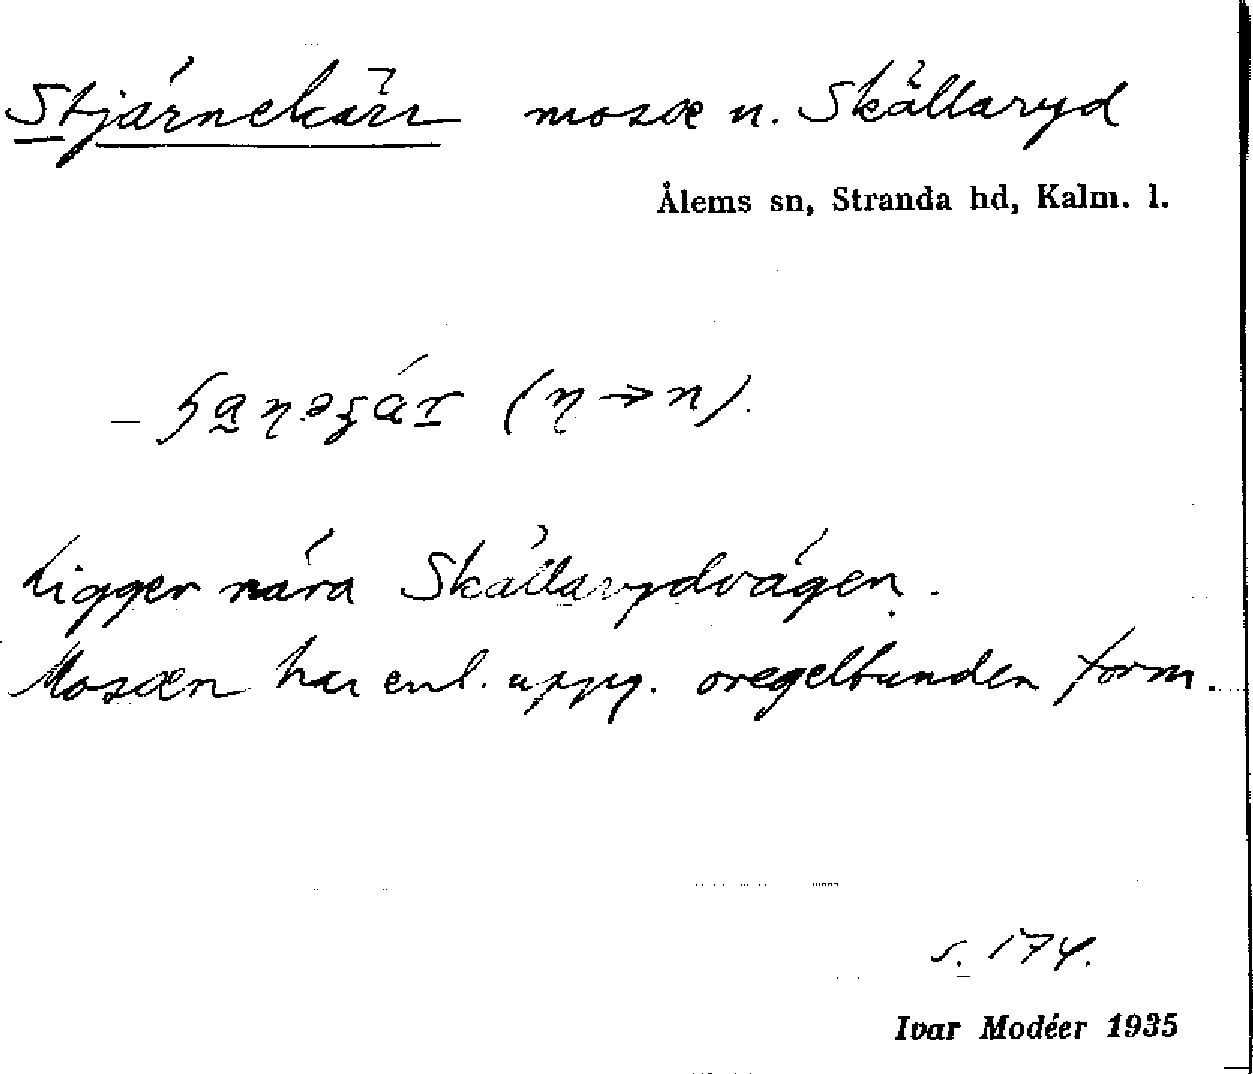 Stjärnekärr mosse n. Skällaryd
Ålems sn, Stranda hd, Kalm. l.
Ligger nära Skällarydvägen.
Mossen har enl. uppg. oregelbunden form.
s. 174.
Ivar Modéer 1935